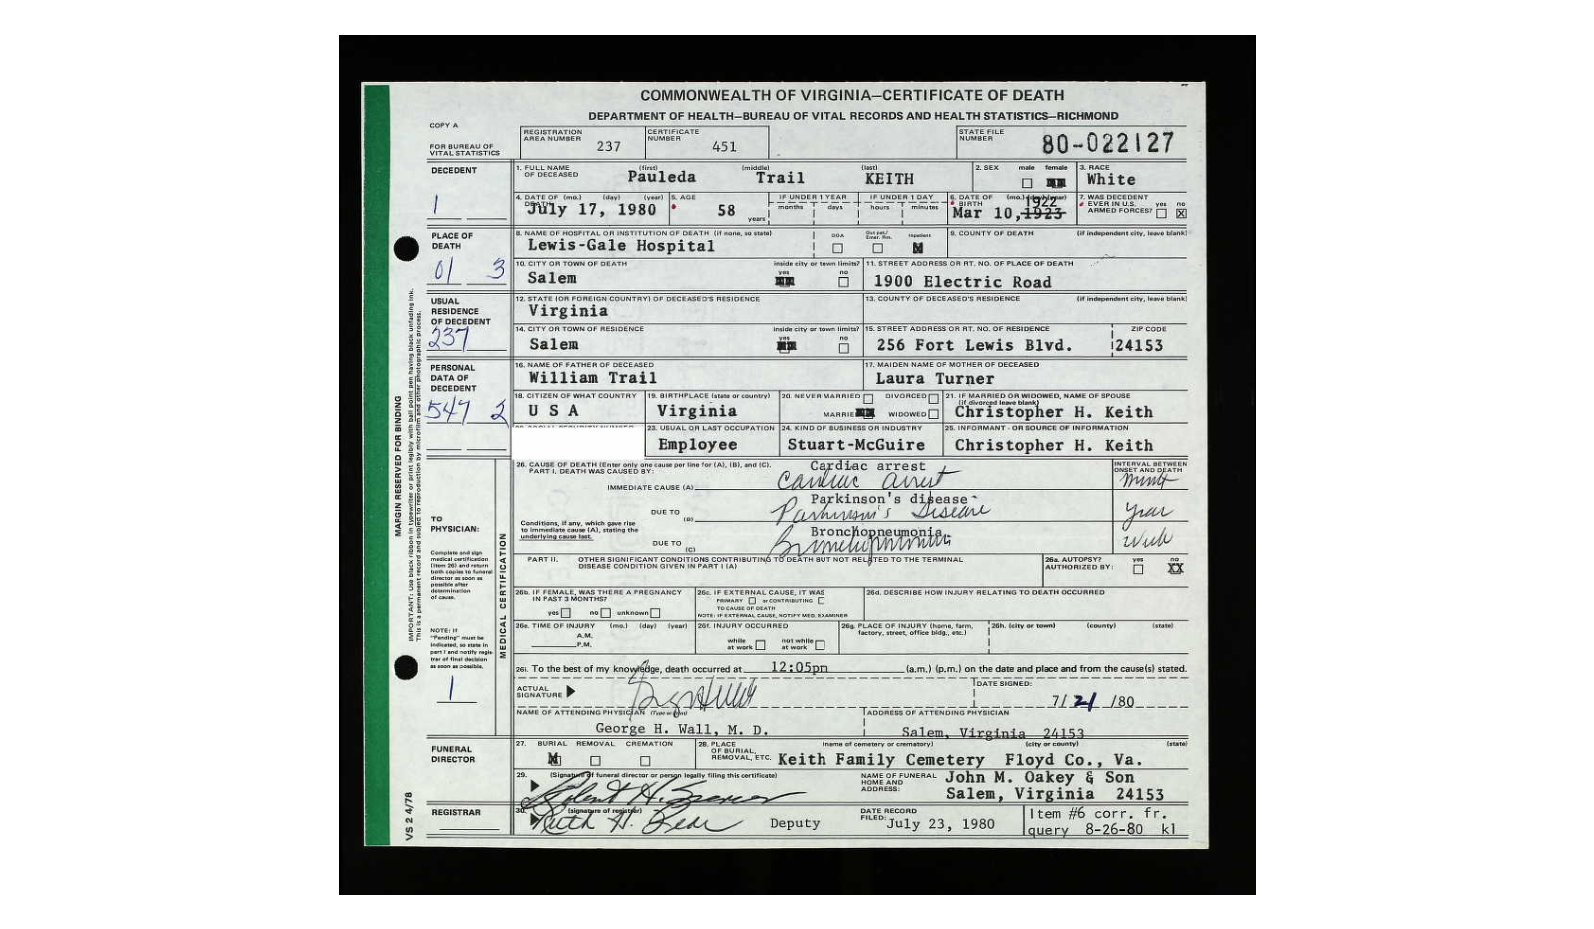 COMMONWEALTH OF VIRGINIA—CERTIFICATE OF DEATH
DEPARTMENT OF HEALTH—BUREAU OF VITAL RECORDS AND HEALTH STATISTICS—RICHMOND
COPY A
FOR BUREAU OF VITAL STATISTICS
REGISTRATION AREA NUMBER 237
CERTIFICATE NUMBER 451
STATE FILE NUMBER 80-022127
DECEDENT
1
1. FULL NAME OF DECEASED (first) Pauleda (middle) Trail (last) KEITH
2. SEX male female
3. RACE White
4. DATE OF DEATH (mo.) (day) (year) July 17, 1980
5. AGE 58 years
IF UNDER 1 YEAR months days
IF UNDER 1 DAY hours minutes
6. DATE OF BIRTH (mo.) (day) (year) Mar 10, 1923 1922
7. WAS DECEDENT EVER IN U.S. ARMED FORCES? yes no X
PLACE OF DEATH
01 3
8. NAME OF HOSPITAL OR INSTITUTION OF DEATH (if none, so state) Lewis-Gale Hospital
DOA Out pat/ Emer. Rm. Inpatient
9. COUNTY OF DEATH (if independent city, leave blank)
10. CITY OR TOWN OF DEATH Salem
inside city or town limits? yes no
11. STREET ADDRESS OR RT. NO. OF PLACE OF DEATH 1900 Electric Road
USUAL RESIDENCE OF DECEDENT
237
12. STATE (OR FOREIGN COUNTRY) OF DECEASED'S RESIDENCE Virginia
13. COUNTY OF DECEASED'S RESIDENCE (if independent city, leave blank)
14. CITY OR TOWN OF RESIDENCE Salem
inside city or town limits? yes no
15. STREET ADDRESS OR RT. NO. OF RESIDENCE 256 Fort Lewis Blvd.
ZIP CODE 24153
PERSONAL DATA OF DECEDENT
547 2
16. NAME OF FATHER OF DECEASED William Trail
17. MAIDEN NAME OF MOTHER OF DECEASED Laura Turner
18. CITIZEN OF WHAT COUNTRY U S A
19. BIRTHPLACE (state or country) Virginia
20. NEVER MARRIED DIVORCED
MARRIED WIDOWED
21. IF MARRIED OR WIDOWED, NAME OF SPOUSE (if divorced leave blank) Christopher H. Keith
23. USUAL OR LAST OCCUPATION Employee
24. KIND OF BUSINESS OR INDUSTRY Stuart-McGuire
25. INFORMANT - OR SOURCE OF INFORMATION Christopher H. Keith
MARGIN RESERVED FOR BINDING
IMPORTANT: Use black ribbon in typewriter or print legibly with ball point pen having black unfading ink.
This is a permanent record and subject to reproduction by microfilm and other photographic process.
TO PHYSICIAN:
Complete and sign medical certification (item 26) and return both copies to funeral director as soon as possible after determination of cause.
NOTE: If "Pending" must be indicated, so state in part I and notify registrar of final decision as soon as possible.
1
MEDICAL CERTIFICATION
26. CAUSE OF DEATH (Enter only one cause per line for (A), (B), and (C).
PART I. DEATH WAS CAUSED BY:
INTERVAL BETWEEN ONSET AND DEATH
Cardiac arrest
IMMEDIATE CAUSE (A) Cardiac arrest
Parkinson's disease
DUE TO (B) Parkinson's Disease Year
Conditions, if any, which gave rise to immediate cause (A), stating the underlying cause last.
Bronchopneumonia
DUE TO (C) Bronchopneumonia Week
PART II. OTHER SIGNIFICANT CONDITIONS CONTRIBUTING TO DEATH BUT NOT RELATED TO THE TERMINAL DISEASE CONDITION GIVEN IN PART I (A)
26a. AUTOPSY? AUTHORIZED BY: yes no XX
26b. IF FEMALE, WAS THERE A PREGNANCY IN PAST 3 MONTHS? yes no unknown
26c. IF EXTERNAL CAUSE, IT WAS PRIMARY or CONTRIBUTING TO CAUSE OF DEATH
NOTE: IF EXTERNAL CAUSE, NOTIFY MED. EXAMINER
26d. DESCRIBE HOW INJURY RELATING TO DEATH OCCURRED
26e. TIME OF INJURY (mo.) (day) (year) A.M. P.M.
26f. INJURY OCCURRED while at work not while at work
26g. PLACE OF INJURY (home, farm, factory, street, office bldg., etc.)
26h. (city or town) (county) (state)
26i. To the best of my knowledge, death occurred at 12:05pm (a.m.) (p.m.) on the date and place and from the cause(s) stated.
ACTUAL SIGNATURE
DATE SIGNED: 7/ 21 /80
NAME OF ATTENDING PHYSICIAN (Type or Print) George H. Wall, M. D.
ADDRESS OF ATTENDING PHYSICIAN Salem, Virginia 24153
FUNERAL DIRECTOR
27. BURIAL REMOVAL CREMATION
28. PLACE OF BURIAL, REMOVAL, ETC. (name of cemetery or crematory) (city or county) (state) Keith Family Cemetery Floyd Co., Va.
29. (Signature of funeral director or person legally filing this certificate)
NAME OF FUNERAL HOME AND ADDRESS: John M. Oakey & Son
Salem, Virginia 24153
REGISTRAR
30. (signature of registrar) Deputy
DATE RECORD FILED: July 23, 1980
Item #6 corr. fr.
query 8-26-80 kl
VS 2 4/78